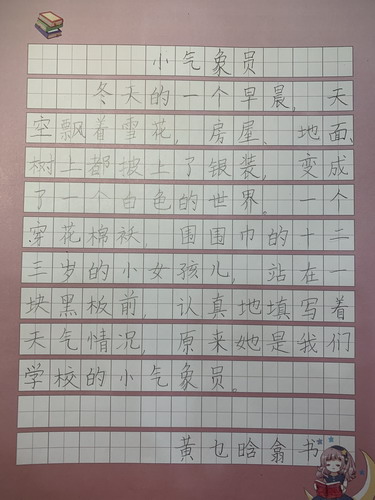 小气象员
冬天的一个早晨，天
空飘着雪花，房屋、地面、
树上都披上了银装，变成
了一个白色的世界。一个
穿花棉袄，围围巾的十二
三岁的小女孩儿，站在一
块黑板前，认真地填写着
天气情况，原来她是我们
学校的小气象员。
黄乜晗翕书